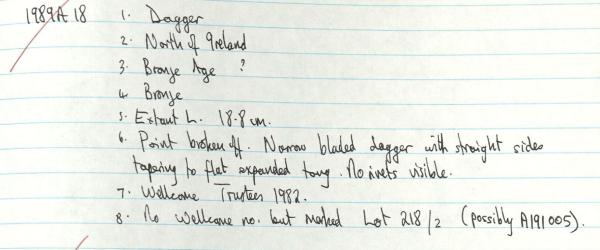 1989A 18 1. Dagger
2. North of Ireland
3. Bronze Age ?
4. Bronze
5. Extant L. 18.8 cm.
6. Point broken off. Narrow bladed dagger with straight sides
tapering to flat expanded tang. No rivets visible.
7. Wellcome Trustees 1982.
8. No Wellcome no. but marked Lot 218/2 (possibly A191005).